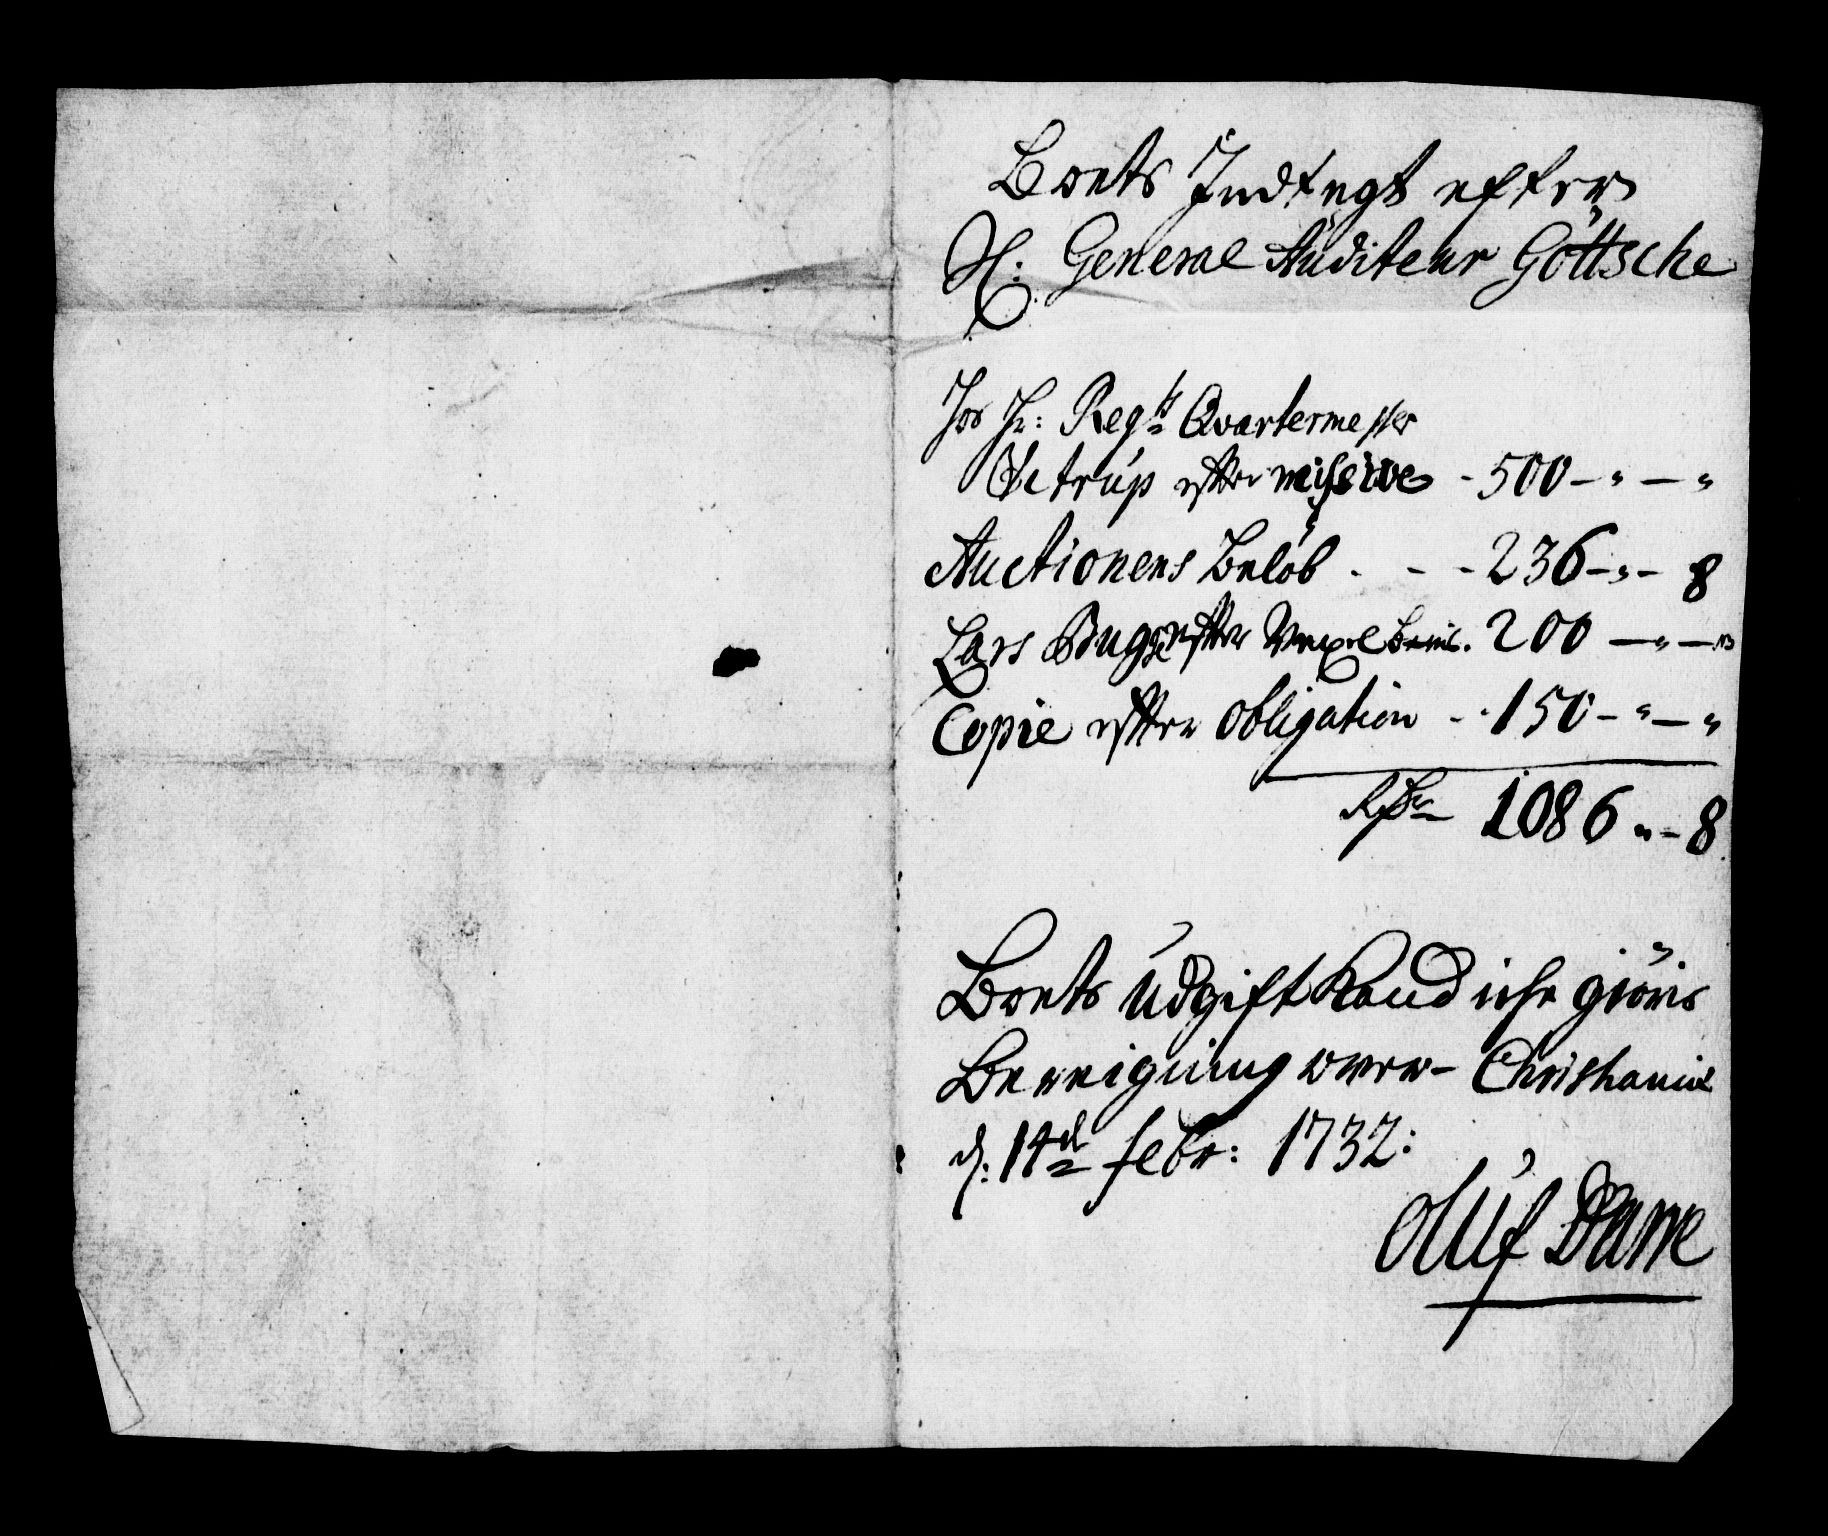 Boets Indtegt efter
H: General Auditeur Göttsche
Hos Hr: Regts Qvartermester
Vetrúp efter missive - 500 - " - "
Auctionens Belöb . - - 236 - " - 8
Lars Bugge efter Vexel breve . 200 - " - "
Copie efter obligation - - 150 - " - "
Rdr 1086 " - 8
Boets Údgift Kand iche giöris
Bereigning over - Christiania
d: 14de febr: 1732:
Olúf